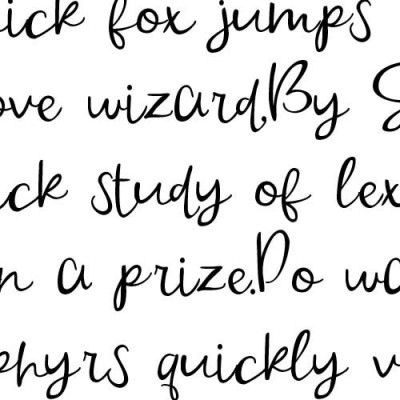 ick fox jumps
ove wizard,By S
ick study of lex
n a prize.Do wa
phyrs quickly v